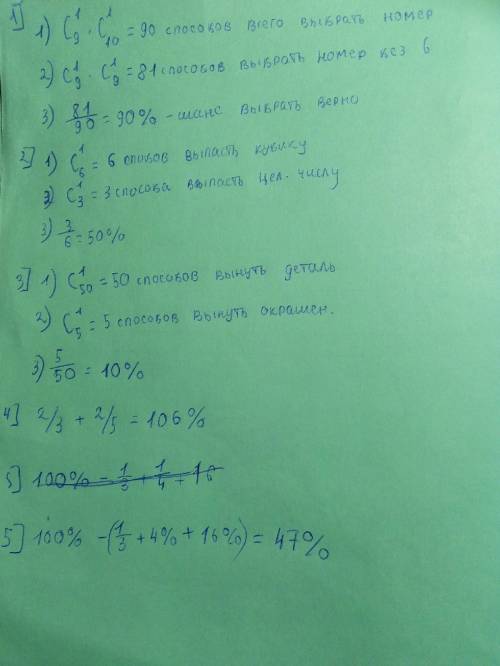 1] 1) C¹₉ · C¹₁₀ = 90 способов всего выбрать номер
2) C¹₉ · C¹₉ = 81 способов выбрать номер без 6
3) 81/90 = 90% - шанс выбрать верно
2] 1) C¹₆ = 6 спобов выпасть кубику
2) C¹₃ = 3 способа выпасть цел. числу
3) 3/6 = 50%
3] 1) C¹₅₀ = 50 способов вынуть деталь
2) C¹₅ = 5 способов вынуть окрашен.
3) 5/50 = 10%
4] 2/3 + 2/5 = 106%
5] 100% - 1/3 + 1/4 + 16
5] 100% - (1/3 + 4% + 16%) = 47%